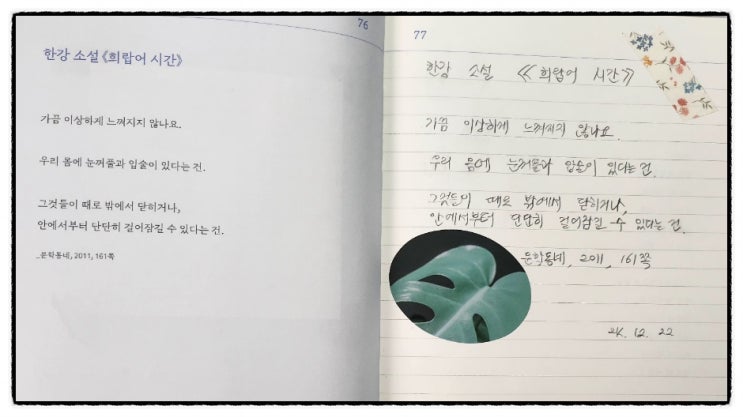 76
한강 소설 《희랍어 시간》
가끔 이상하게 느껴지지 않나요.
우리 몸에 눈꺼풀과 입술이 있다는 건.
그것들이 때로 밖에서 닫히거나,
안에서부터 단단히 걸어잠길 수 있다는 건.
_문학동네, 2011, 161쪽
77
한강 소설 《희랍어 시간》
가끔 이상하게 느껴지지 않나요.
우리 몸에 눈꺼풀과 입술이 있다는 건.
그것들이 때로 밖에서 닫히거나,
안에서부터 단단히 걸어잠길 수 있다는 건.
문학동네, 2011, 161쪽
24. 12. 22